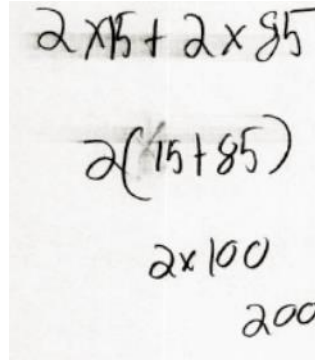 2 x 15 + 2 x 85
2(15+85)
2 x 100
200